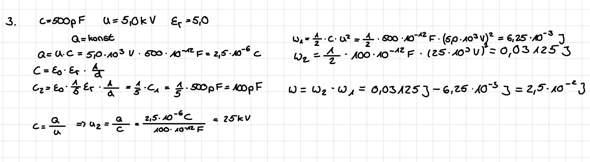 3. C=500pF U=5,0kV εr=5,0
a=konst
a=u·c=5,0·10³ V · 500·10⁻¹² F=2,5·10⁻⁶ C
C=ε₀·εr·A/d
C₂=ε₀·1/5 εr·A/d=1/5·C₁=1/5·500pF=100pF
C=a/u ⇒ u₂=a/c=2,5·10⁻⁶C/100·10⁻¹²F=25kV
W₁=1/2·C·u²=1/2·500·10⁻¹²F·(5,0·10³V)²=6,25·10⁻³ J
W₂=1/2·100·10⁻¹²F·(25·10³V)²=0,03125J
W=W₂-W₁=0,03125J-6,25·10⁻³J=2,5·10⁻²J